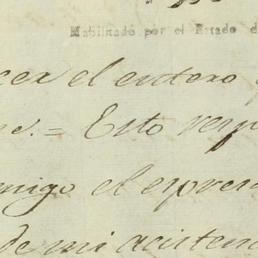 Habilitado por el Estado d
cer el entero
e.= Esto res
migo el espres
de mi asistenc